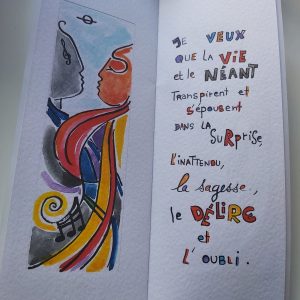 JE VEUX
QUE LA VIE
et le NÉANT
Transpirent et
s'épousent
DANS LA
SURPRISE,
L'INATTENDU,
la sagesse,
le DÉLIRE
et
L'OUBLI.